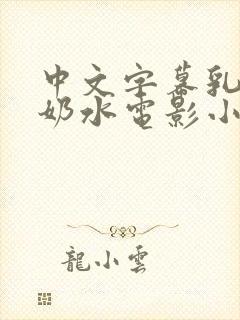 中文字幕乳
奶水电影小
龍小雲